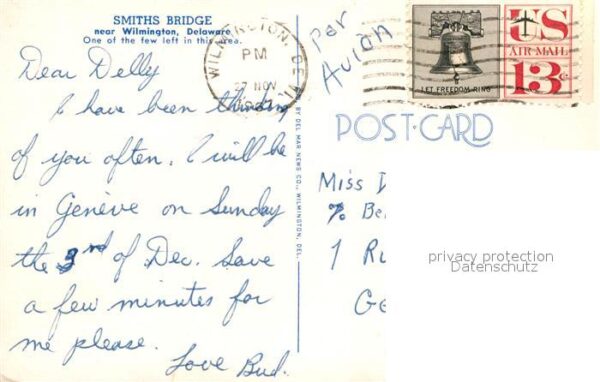 SMITHS BRIDGE
near Wilmington, Delaware
One of the few left in this area.
Dear Delly
I have been thinking
of you often. I will be
in Genève on Sunday
the 3rd of Dec. Save
a few minutes for
me please.
Love Bud.
BY DEL MAR NEWS CO., WILMINGTON, DEL.
WILMINGTON, DEL.
PM
27 NOV
Par
Avion
LET FREEDOM RING
US
AIR MAIL
13c
POST CARD
Miss
% Be
1 Ru
Ge
privacy protection
Datenschutz